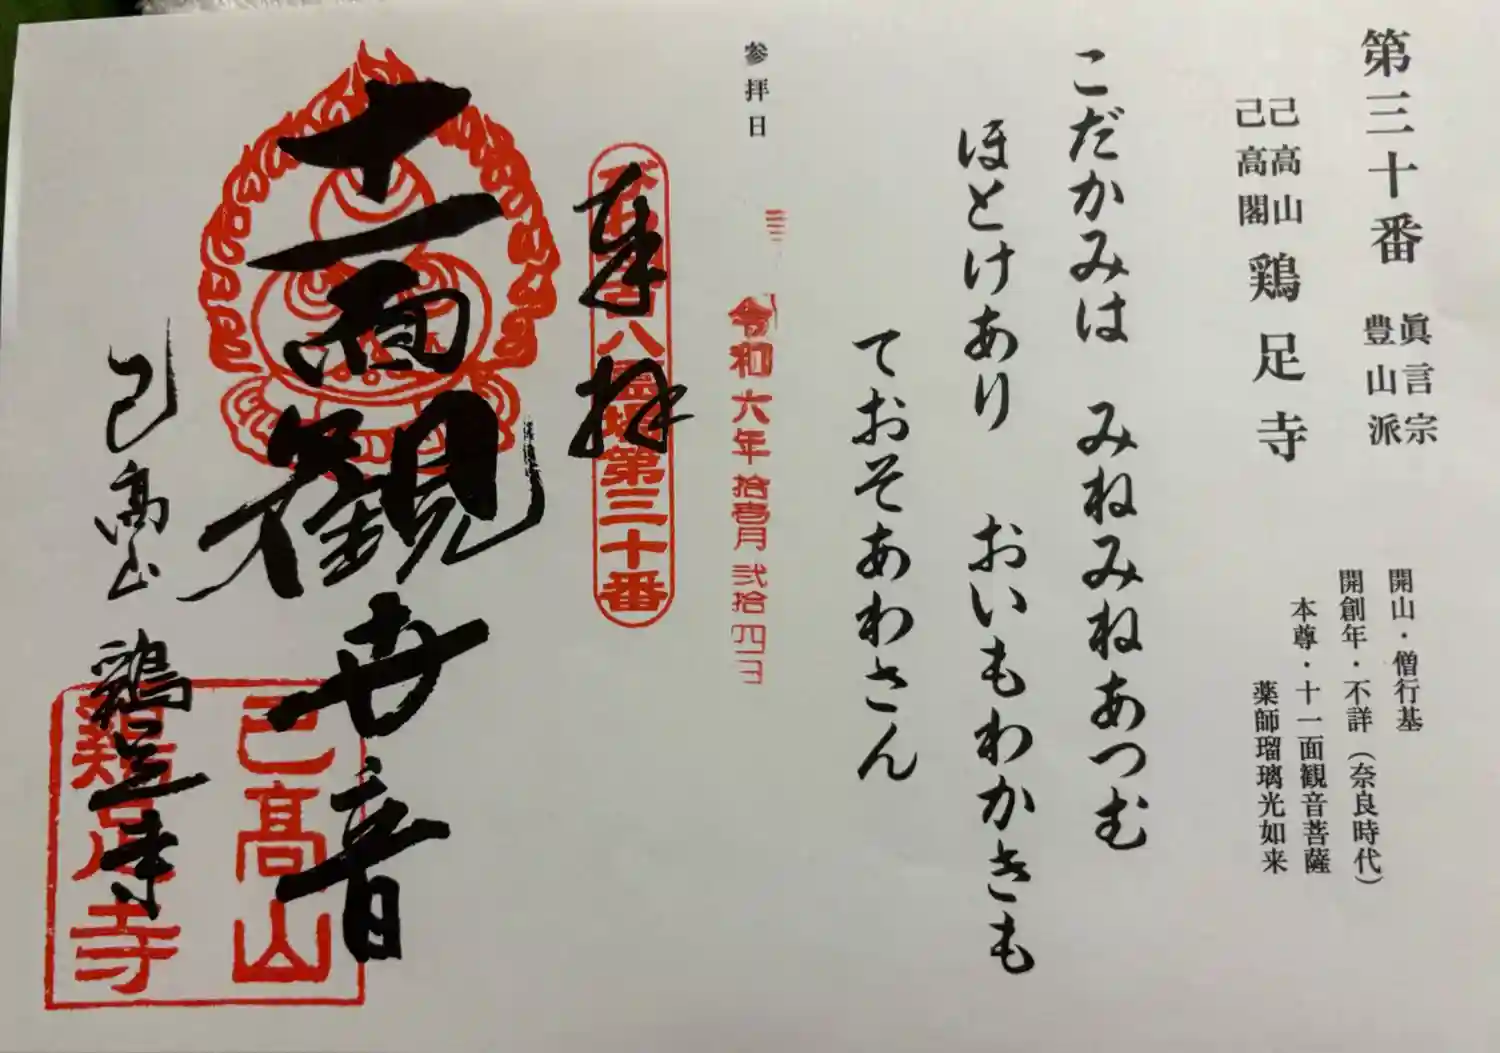 第三十番
眞言宗
豊山派
己高山
己高閣
鶏足寺
開山・僧行基
開創年・不詳(奈良時代)
本尊・十一面観音菩薩
薬師瑠璃光如来
こだかみは みねみねあつむ
ほとけあり おいもわかきも
ておそあわさん
参拝日
令和六年拾壱月弐拾四日
奉拝
八霊場第三十番
十一面観世音
己高山 鶏足寺
己高山
鶏足寺